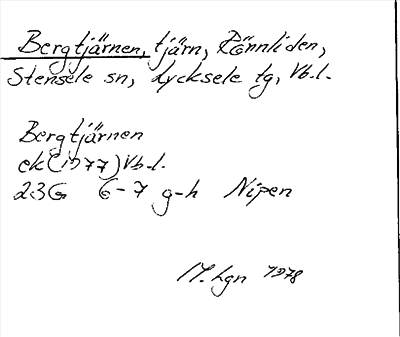 Bergtjärnen, tjärn, Rönnliden,
Stensele sn, Lycksele tg, Vb.l.
Bergtjärnen
ek (1977) Vb.l.
23G 6-7 g-h Nipen
M.hgn 1978